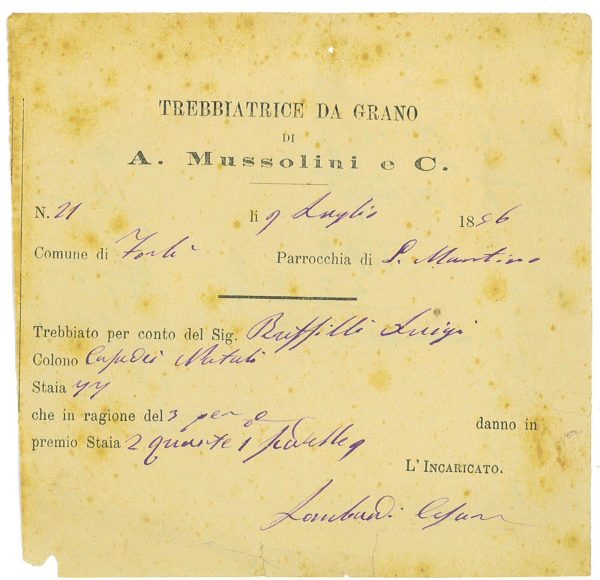 TREBBIATRICE DA GRANO
DI
A. Mussolini e C.
N. 21 li 9 Luglio 1896
Comune di Forlì Parrocchia di S. Martino
Trebbiato per conto del Sig. Buffilli Luigi
Colono Casadei
Staia 77
che in ragione del 3 per % danno in
premio Staia 2 quarte 1
L'INCARICATO.
Lombardi Cesare